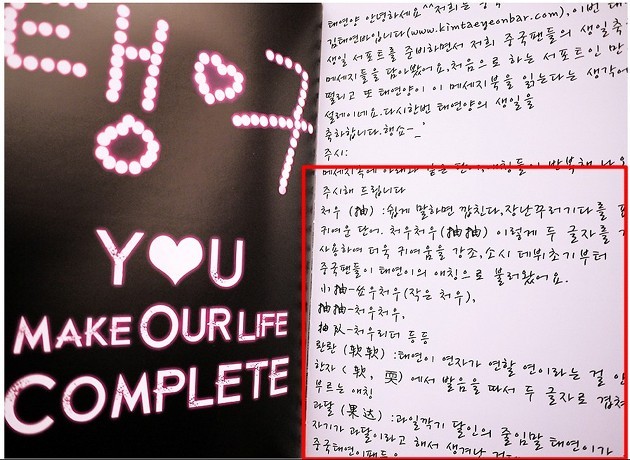 탱♥구
YOU
MAKE OUR LIFE
COMPLETE
태연양 안녕하세요^^저희는
김태연바입니다(www.kimtaeyeonbar.com),이번 태
생일 서포트를 준비하면서 저희 중국팬들의 생일축
메세지들을 담아봤어요.처음으로 하는 서포트인 만
떨리고 또 태연양이 이 메세지북을 읽는다는 생각에
설레이네요.다시한번 태연양의 생일을
축하합니다.행쇼-_'
주시:
주시해 드립니다
처우 (抽) :쉽게 말하면 깝친다,장난꾸러기다를
귀여운 단어. 처우처우(抽抽) 이렇게 두 글자를
사용하여 더욱 귀여움을 강조,소시 데뷔초기부터
중국팬들이 태연이의 애칭으로 불러왔어요.
小抽-쑈우처우(작은 처우),
抽抽-처우처우,
抽队-처우리더 등등
란란 (软软) :태연이 연자가 연할 연이라는 걸
한자 ( 软, 耎) 에서 발음을 따서 두 글자로 겹쳐
부르는 애칭
과달 (果达) :과일깎기 달인의 줄임말 태연이가
자기가 과달이라고 해서 생겨나
중국태연이팬들